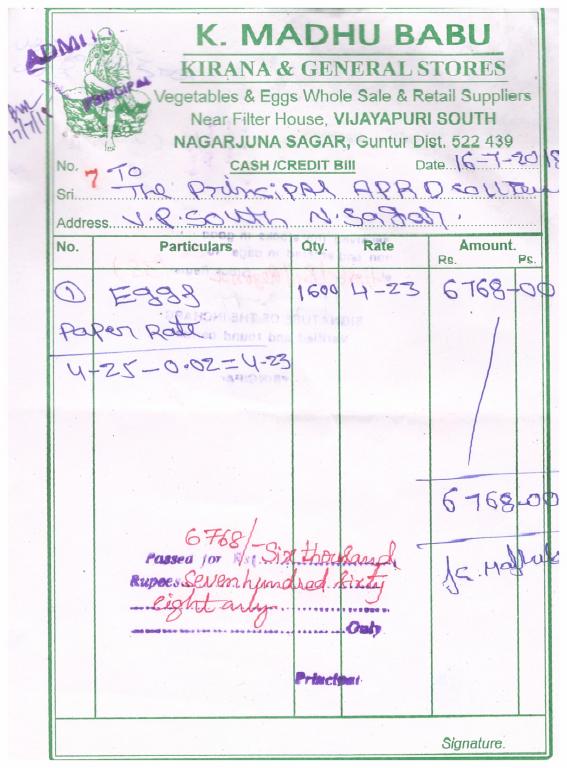 K. MADHU BABU
KIRANA & GENERAL STORES
Vegetables & Eggs Whole Sale & Retail Suppliers
Near Filter House, VIJAYAPURI SOUTH
NAGARJUNA SAGAR, Guntur Dist. 522 439
PRINCIPAL
17/7/18
No. 7 CASH /CREDIT Bill Date 16-7-2018
To
Sri The Principal APRD
Address V.P. South N. Sagar.
No. Particulars Qty. Rate Amount.
Rs. Ps.
① Eggs 1600 4-23 6768-00
Paper Rate
4-25-0.02=4-23
6768-00
6768/-
Passed for Rs. Six thousand
Rupees Seven hundred Sixty
eight only
Only
Principal
Signature.